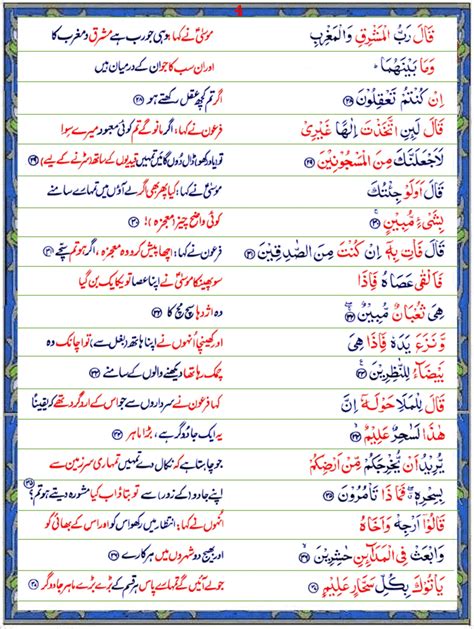 4
قَالَ رَبُّ الْمَشْرِقِ وَالْمَغْرِبِ موسیٰؑ نے کہا: وہی جو رب ہے مشرق و مغرب کا
وَمَا بَيْنَهُمَا ؕ اور ان سب کا جو ان کے درمیان ہیں
اِنْ كُنْتُمْ تَعْقِلُوْنَ ۲۸ اگر تم کچھ عقل رکھتے ہو ۲۸
قَالَ لَئِنِ اتَّخَذْتَ اِلٰهًا غَيْرِيْ فرعون نے کہا: اگر مانو گے تم کوئی معبود میرے سوا
لَاَجْعَلَنَّكَ مِنَ الْمَسْجُوْنِيْنَ ۲۹ تو یاد رکھو ڈال دوں گا میں تمہیں قیدیوں کے ساتھ (سڑنے کے لیے) ۲۹
قَالَ اَوَلَوْ جِئْتُكَ موسیٰؑ نے کہا: کیا پھر بھی اگر لے آؤں میں تمہارے سامنے
بِشَيْءٍ مُّبِيْنٍ ۳۰ کوئی واضح چیز (معجزہ)! ۳۰
قَالَ فَاْتِ بِهٖۤ اِنْ كُنْتَ مِنَ الصّٰدِقِيْنَ ۳۱ فرعون نے کہا: اچھا پیش کرو وہ معجزہ، اگر ہو تم سچے ۳۱
فَاَلْقٰى عَصَاهُ فَاِذَا سو پھینکا موسیٰؑ نے اپنا عصا تو یکایک بن گیا
هِيَ ثُعْبَانٌ مُّبِيْنٌ ۳۲ وہ اژدہا سچ مچ کا ۳۲
وَّنَزَعَ يَدَهٗ فَاِذَا هِيَ اور کھینچا انہوں نے اپنا ہاتھ (بغل سے) تو اچانک وہ
بَيْضَآءُ لِلنّٰظِرِيْنَ ۳۳ چمک رہا تھا دیکھنے والوں کے سامنے ۳۳
قَالَ لِلْمَلَاِ حَوْلَهٗۤ اِنَّ کہا فرعون نے سرداروں سے جو اس کے ارد گرد تھے کہ یقیناً
هٰذَا لَسٰحِرٌ عَلِيْمٌ ۳۴ یہ ایک جادوگر ہے، بڑا ماہر ۳۴
يُّرِيْدُ اَنْ يُّخْرِجَكُمْ مِّنْ اَرْضِكُمْ جو چاہتا ہے کہ نکال دے تمہیں تمہاری سرزمین سے
بِسِحْرِهٖ فَمَاذَا تَاْمُرُوْنَ ۳۵ اپنے جادو (کے زور) سے تو بتاؤ اب کیا مشورہ دیتے ہو تم؟ ۳۵
قَالُوْۤا اَرْجِهْ وَاَخَاهُ انہوں نے کہا: انتظار میں رکھو اس کو اور اس کے بھائی کو
وَابْعَثْ فِي الْمَدَآئِنِ حٰشِرِيْنَ ۳۶ اور بھیج دو شہروں میں ہرکارے ۳۶
يَاْتُوْكَ بِكُلِّ سَحَّارٍ عَلِيْمٍ ۳۷ جو لے آئیں گے تمہارے پاس ہر قسم کے بڑے بڑے ماہر جادوگر ۳۷